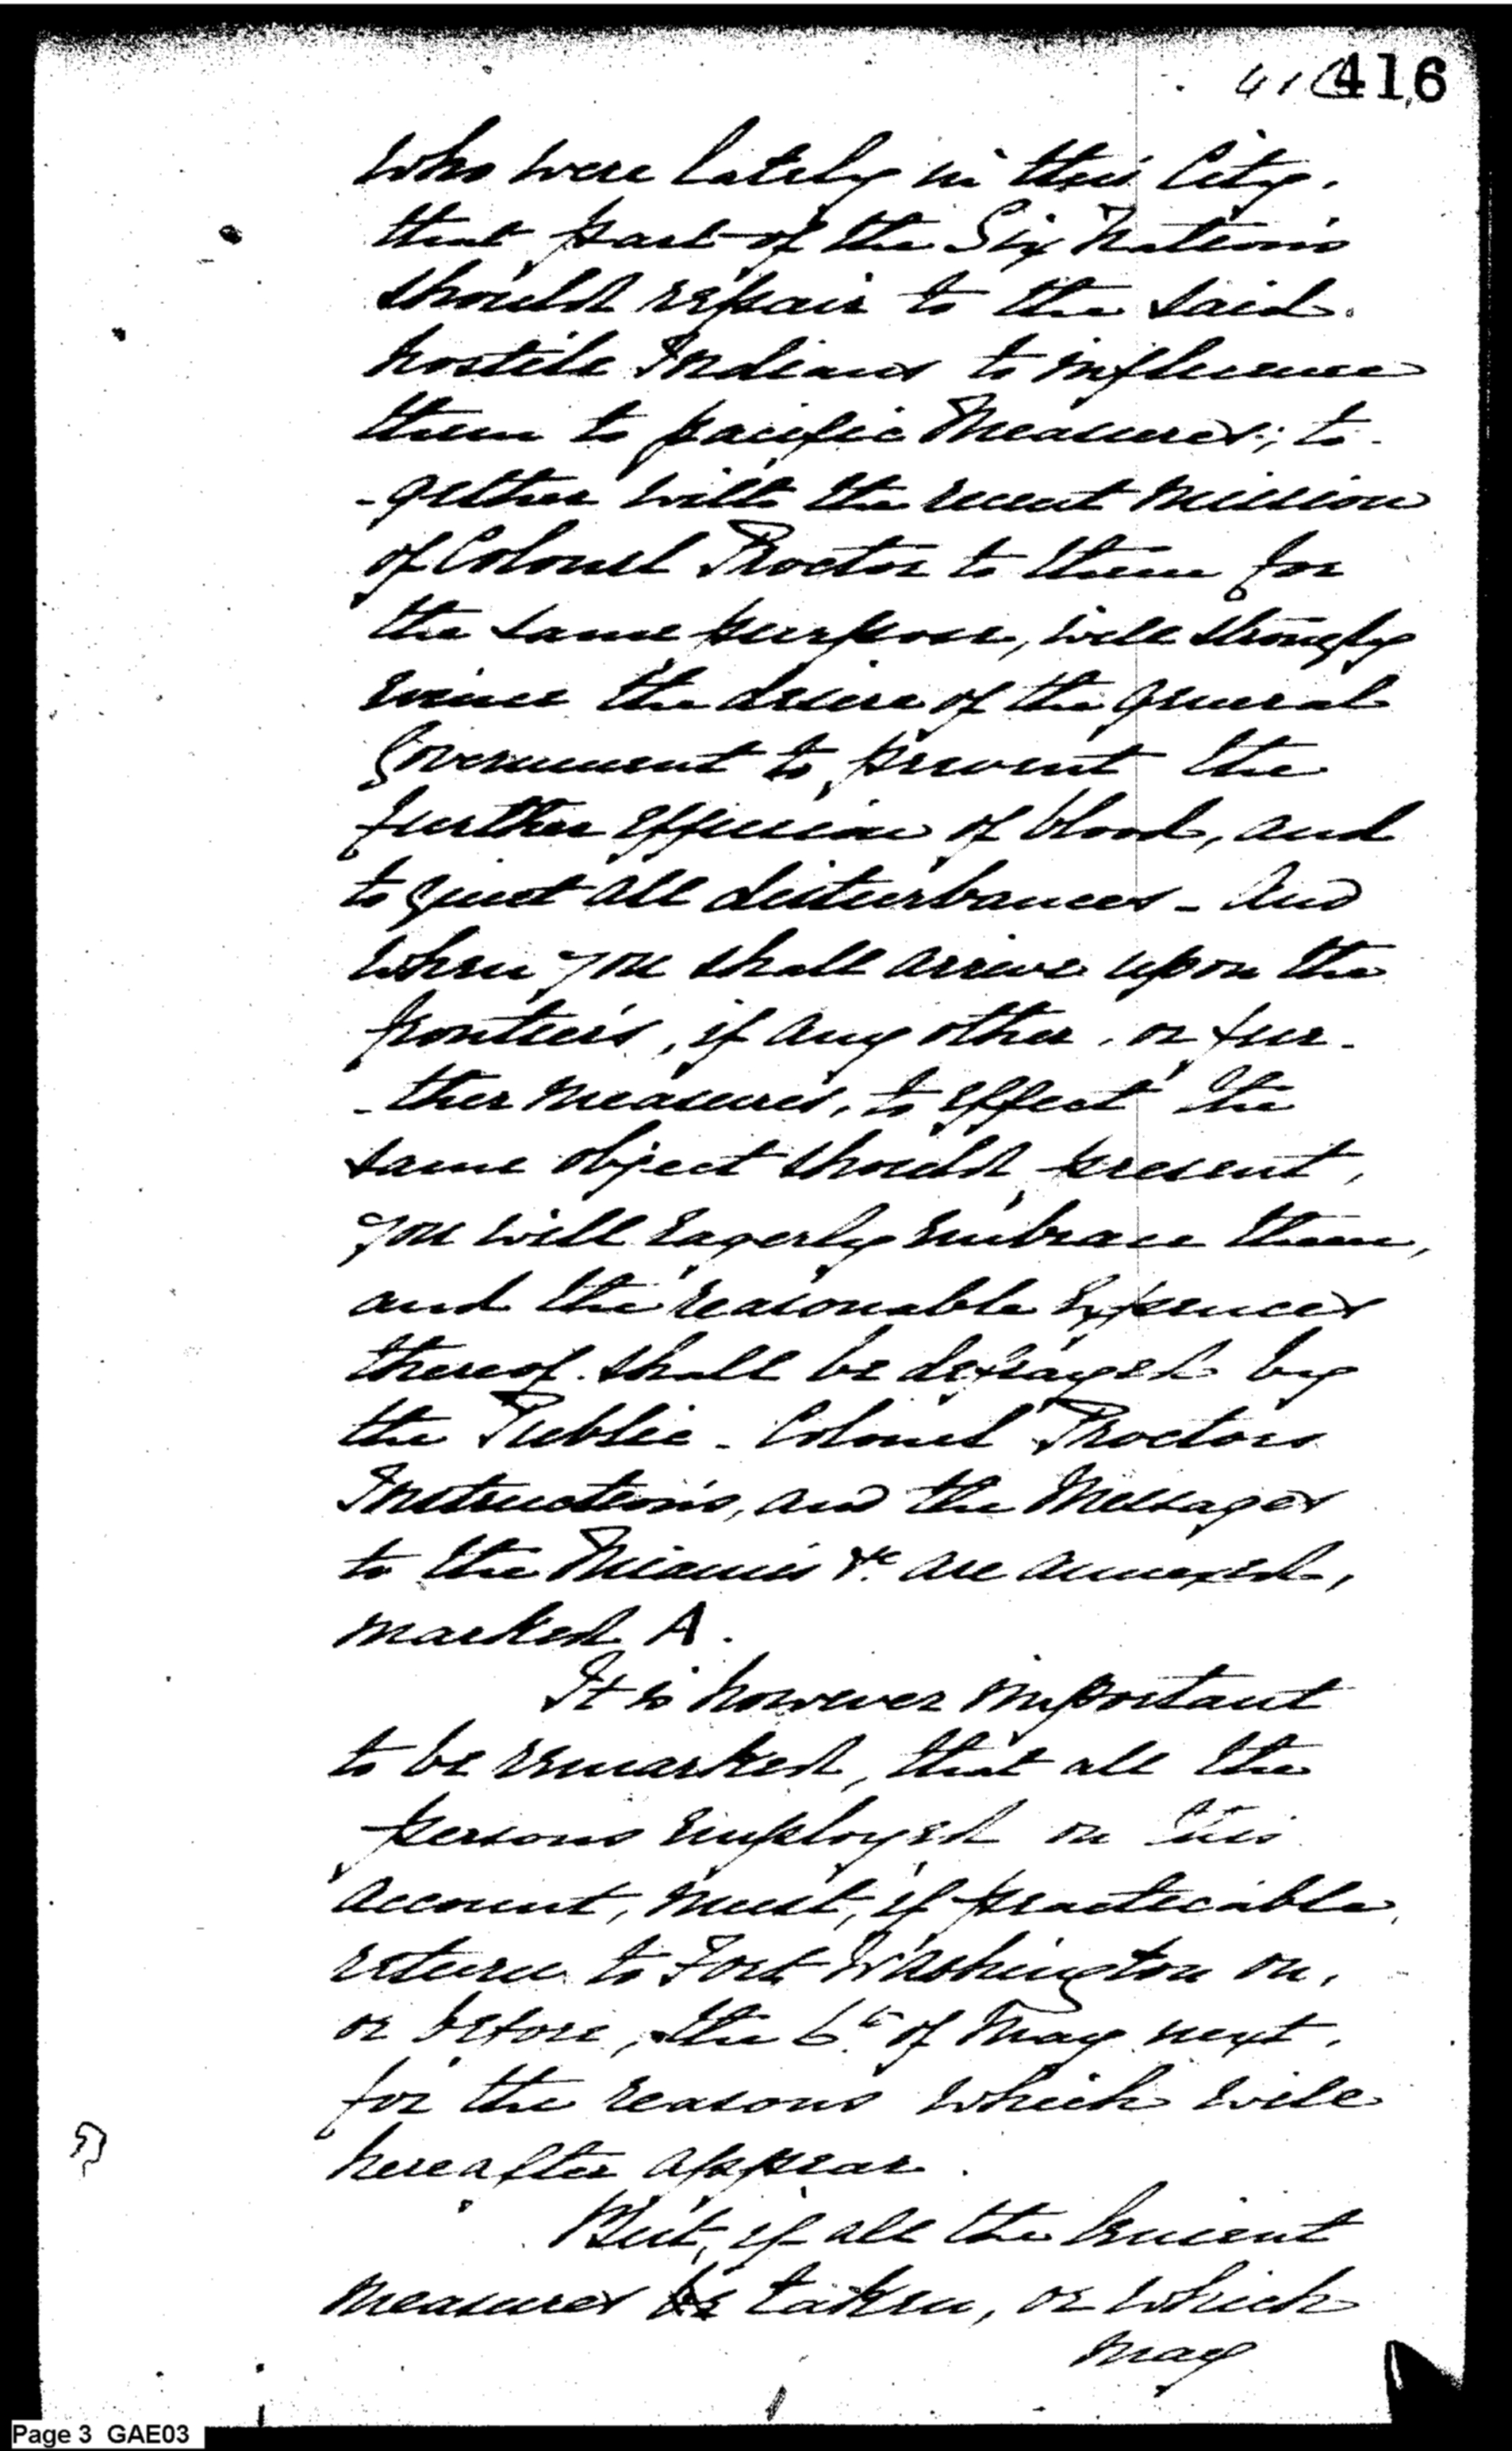 416 416
who were lately in this City,
that part of the Six Nations
should repair to the said
hostile Indians to influence
them to pacific Measures; to-
-gether with the recent Mission
of Colonel Proctor to them for
the same purpose, will strongly
evince the desire of the general
Government to prevent the
further effusion of blood, and
to quiet all disturbances - And
when you shall arrive upon the
frontiers, if any other, or fur-
-ther measures, to effect the
same object should present,
you will eagerly embrace them,
and the reasonable Expences
thereof shall be defrayed by
the Public - Colonel Proctors
Instructions, and the Messages
to the Miamis &c are annexed,
marked A.
It is however important
to be remarked, that all the
persons employed on this
account, must, if practicable,
return to Fort Washington on,
or before, the 6th of May next,
for the reasons which will
hereafter appear.
But, if all the lenient
measures taken, or which
may
Page 3 GAE03